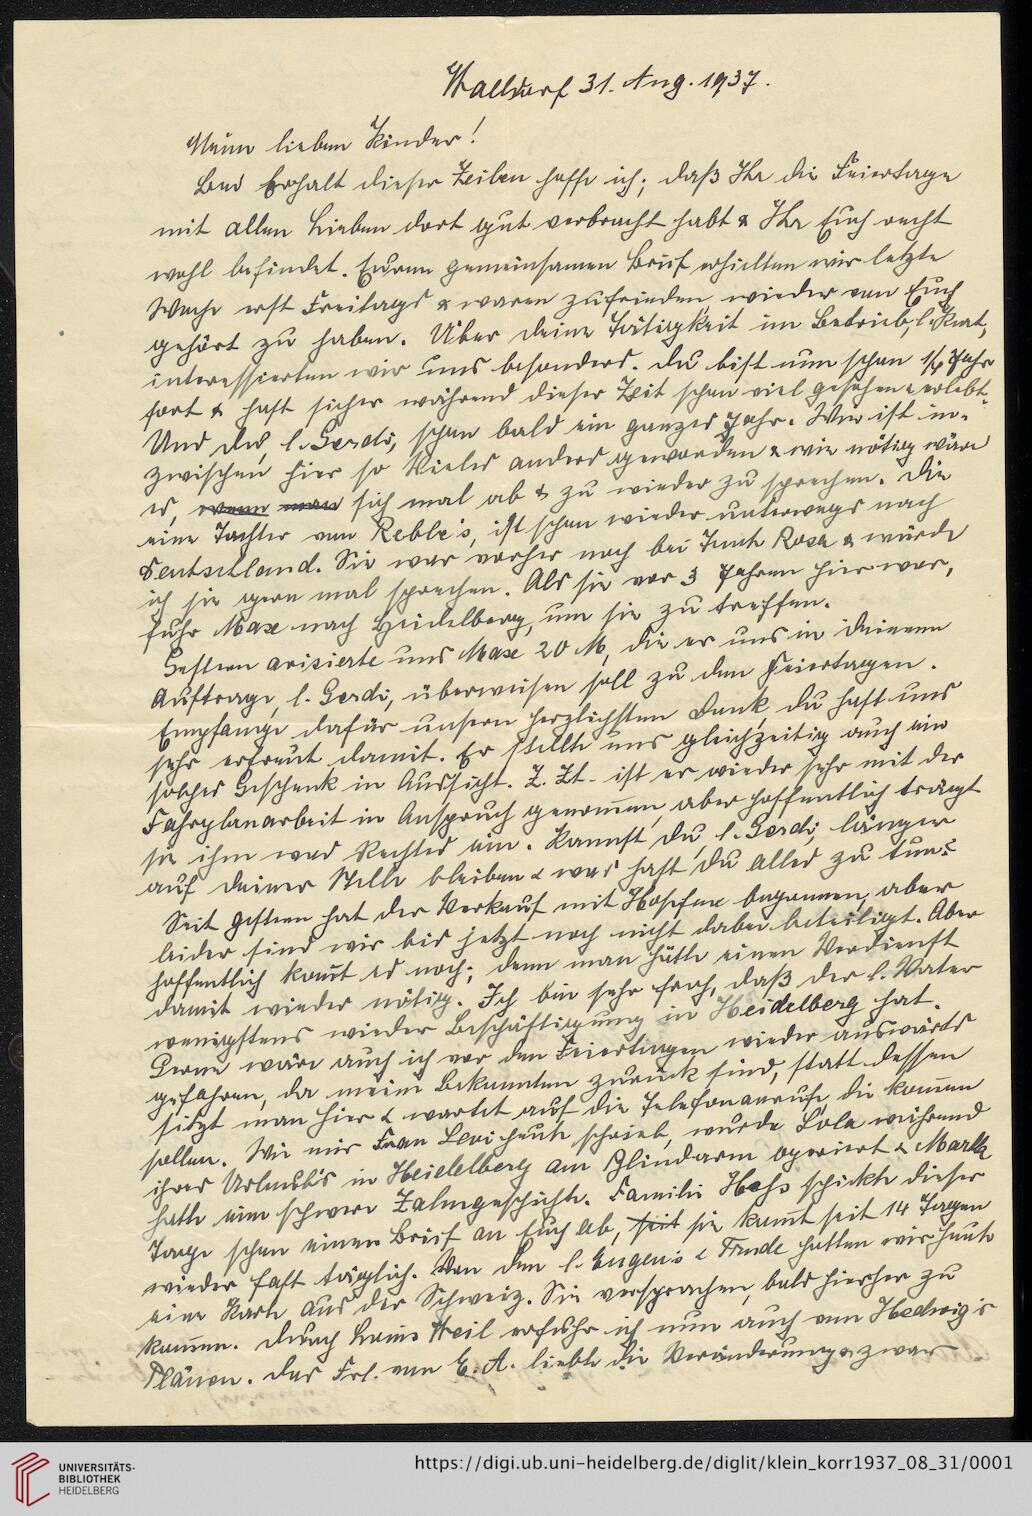 Walldorf 31. Aug. 1937.
Meine lieben Kinder!
Bei Erhalt dieser Zeilen hoffe ich, daß Ihr die Feiertage
mit allen Lieben dort gut verbracht habt & Ihr Euch recht
wohl befindet. Euren gemeinsamen Brief erhielten wir letzte
Woche erst Freitags & waren zufrieden wieder von Euch
gehört zu haben. Über deine Tätigkeit im Betrieb, l. Kurt,
interessierten wir uns besonders. Du bist nun schon 1/4 Jahr
fort & hast sicher während dieser Zeit schon viel gesehen & erlebt.
Und du, l. Gerdi, schon bald ein ganzes Jahr. Wie ist in-
zwischen hier so Vieles anders geworden & wie nötig wäre
es, wenn man sich mal ab & zu wieder zu sprechen. Die
eine Tochter von Rebbe's, ist schon wieder unterwegs nach
Deutschland. Sie war vorher noch bei Tante Rosa & würde
ich sie gern mal sprechen. Als sie vor 3 Jahren hier war,
fuhr Max nach Heidelberg, um sie zu treffen.
Gestern avisierte uns Max 20 M, die er uns in deinem
Auftrage, l. Gerdi, überweisen soll zu den Feiertagen.
Empfange dafür unsern herzlichsten Dank, du hast uns
sehr erfreut damit. Er stellte uns gleichzeitig auch ein
solches Geschenk in Aussicht. Z. Zt. ist er wieder sehr mit der
Fahrplanarbeit in Anspruch genommen, aber hoffentlich trägt
sie ihm was Rechtes ein. Kannst du, l. Gerdi, länger
auf deiner Stelle bleiben & was hast du alles zu tun?
Seit gestern hat der Verkauf mit Hopfen begonnen, aber
leider sind wir bis jetzt noch nicht dabei beteiligt. Aber
hoffentlich kommt es noch; denn man hätte einen Verdienst
damit wieder nötig. Ich bin sehr froh, daß der l. Vater
wenigstens wieder Beschäftigung in Heidelberg hat.
Gerne wäre auch ich vor den Feiertagen wieder auswärts
gefahren, da meine Bekannten zurück sind, statt dessen
sitzt man hier & wartet auf die Telefonanrufe die kommen
sollen. Wie mir Frau Levi heute schrieb, wurde Lola während
ihres Urlaub's in Heidelberg am Blindarm operiert & Martha
hatte eine schwere Zahngeschichte. Familie Hess schickte dieser
Tage schon einen Brief an Euch ab, seit sie kommt seit 14 Tagen
wieder fast täglich. Von den l. Eugen's & Trude hatten wir heute
eine Karte aus der Schweiz. Sie versprachen, bald hierher zu
kommen. Durch Weil erfuhr ich nun auch von Hedwig's
Plänen. Das Frl. von E. A. liebte die Veränderung & zwar
UNIVERSITÄTS-
BIBLIOTHEK
HEIDELBERG
https://digi.ub.uni-heidelberg.de/diglit/klein_korr1937_08_31/0001